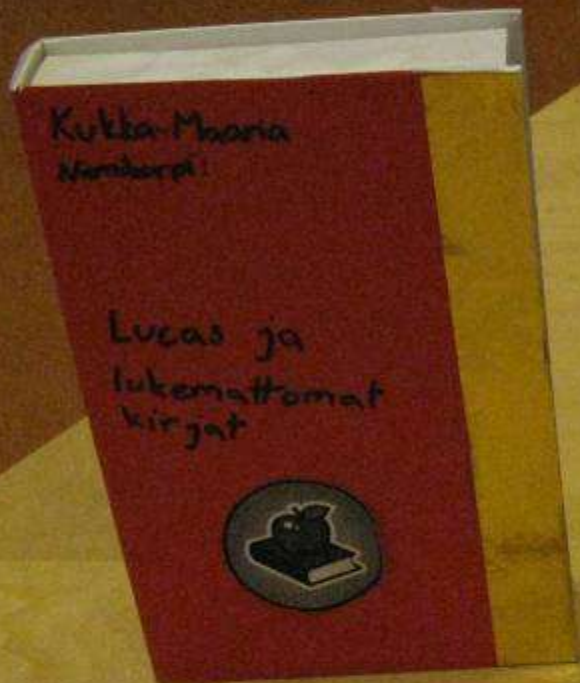 Kukka-Maaria
Lucas ja
lukemattomat
kirjat